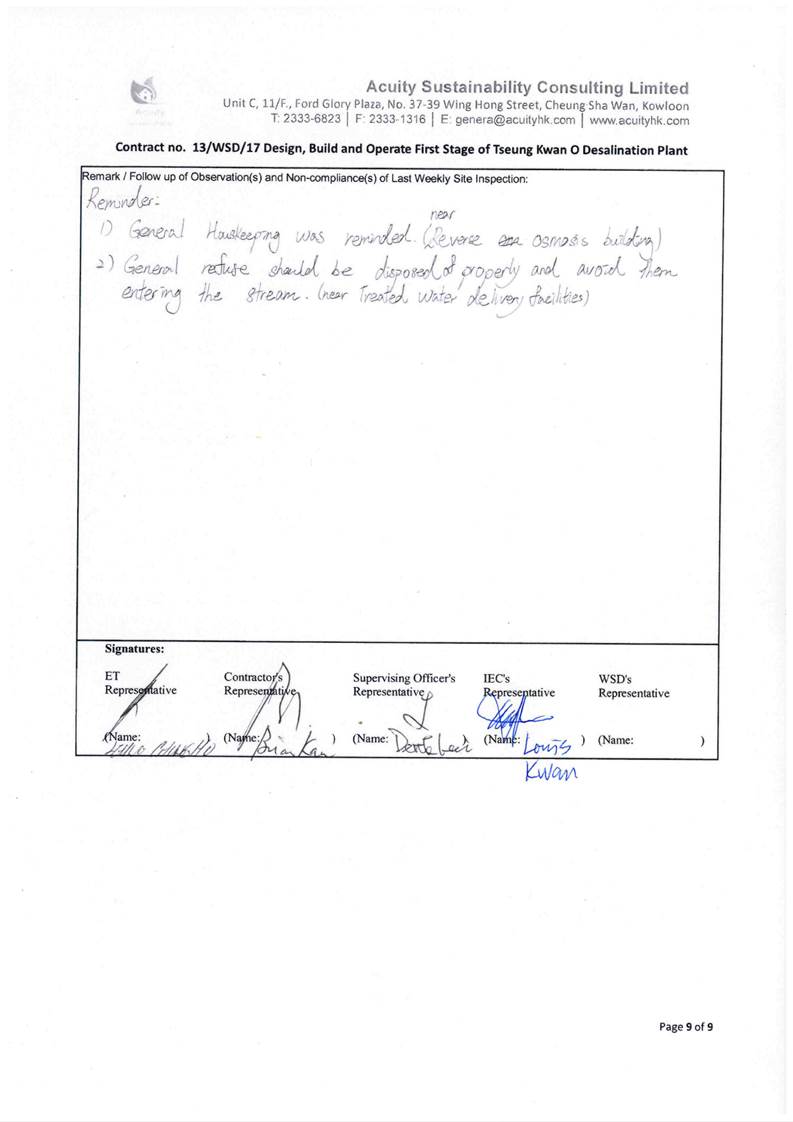 Acuity
Acuity Sustainability Consulting Limited
Unit C, 11/F., Ford Glory Plaza, No. 37-39 Wing Hong Street, Cheung Sha Wan, Kowloon
T: 2333-6823 | F: 2333-1316 | E: genera@acuityhk.com | www.acuityhk.com
Contract no. 13/WSD/17 Design, Build and Operate First Stage of Tseung Kwan O Desalination Plant
Remark / Follow up of Observation(s) and Non-compliance(s) of Last Weekly Site Inspection:
Reminder:
near
1) General Houskeeping was reminded. (Reverse osmosis building)
2) General refuse should be disposed of properly and avoid them
entering the stream. (near Treated Water delivery facilities)
Signatures:
ET Contractor's Supervising Officer's IEC's WSD's
Representative Representative Representative Representative Representative
(Name: ) (Name: Brian Kan ) (Name: ) (Name: Louis ) (Name: )
Kwan
Page 9 of 9